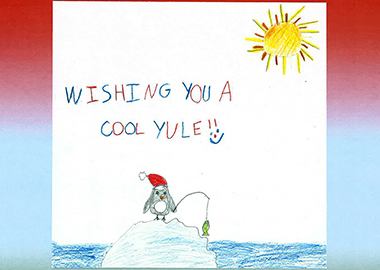 WISHING YOU A
COOL YULE!!